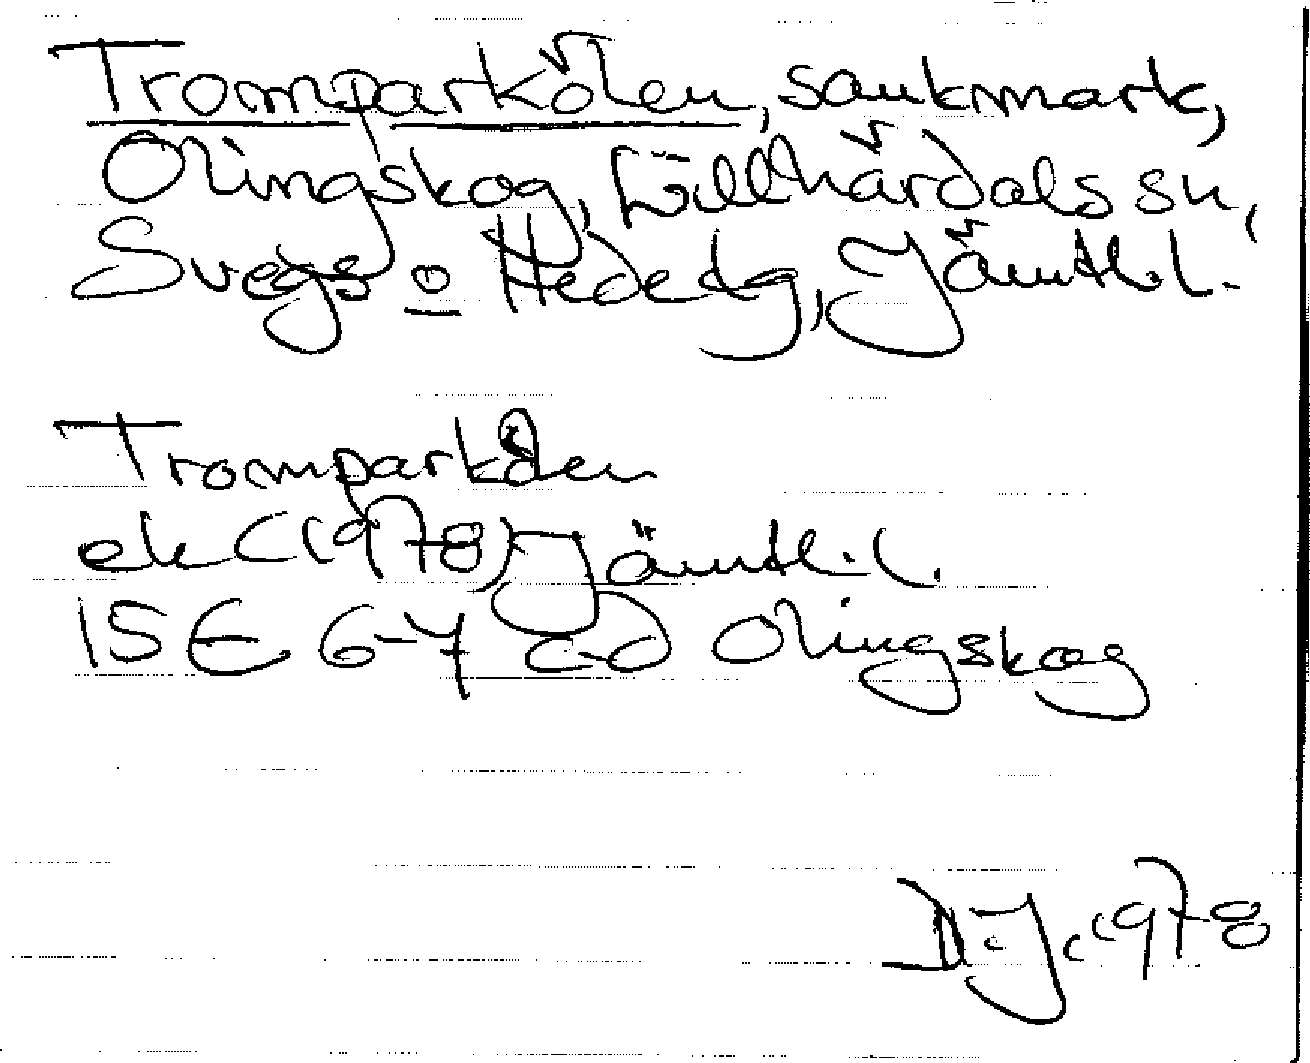 Tromparkölen, sankmark,
Olingskog, Lillhärdals sn,
Svegs o Hede dg, Jämtl. l.
Tromparkölen
ek (1978) Jämtl. l.
15E 6-7 c-d Olingskog
D.J. 1978